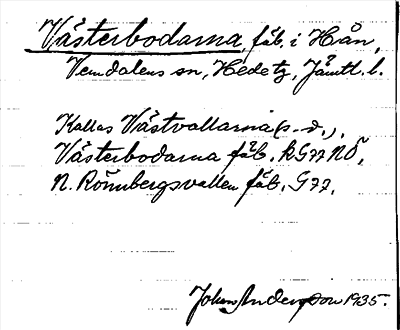 Västerbodarna, fäb. i Hån,
Vemdalens sn, Hede tg, Jämtl. l.
Kallas Västvallarna (s. d.),
Västerbodarna fäb. k G77 NÖ,
N. Rönnbergsvallen fäb. G77.
Johan Andersson 1935.